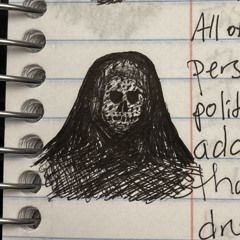 All o
pers
polit
add
tha
dr